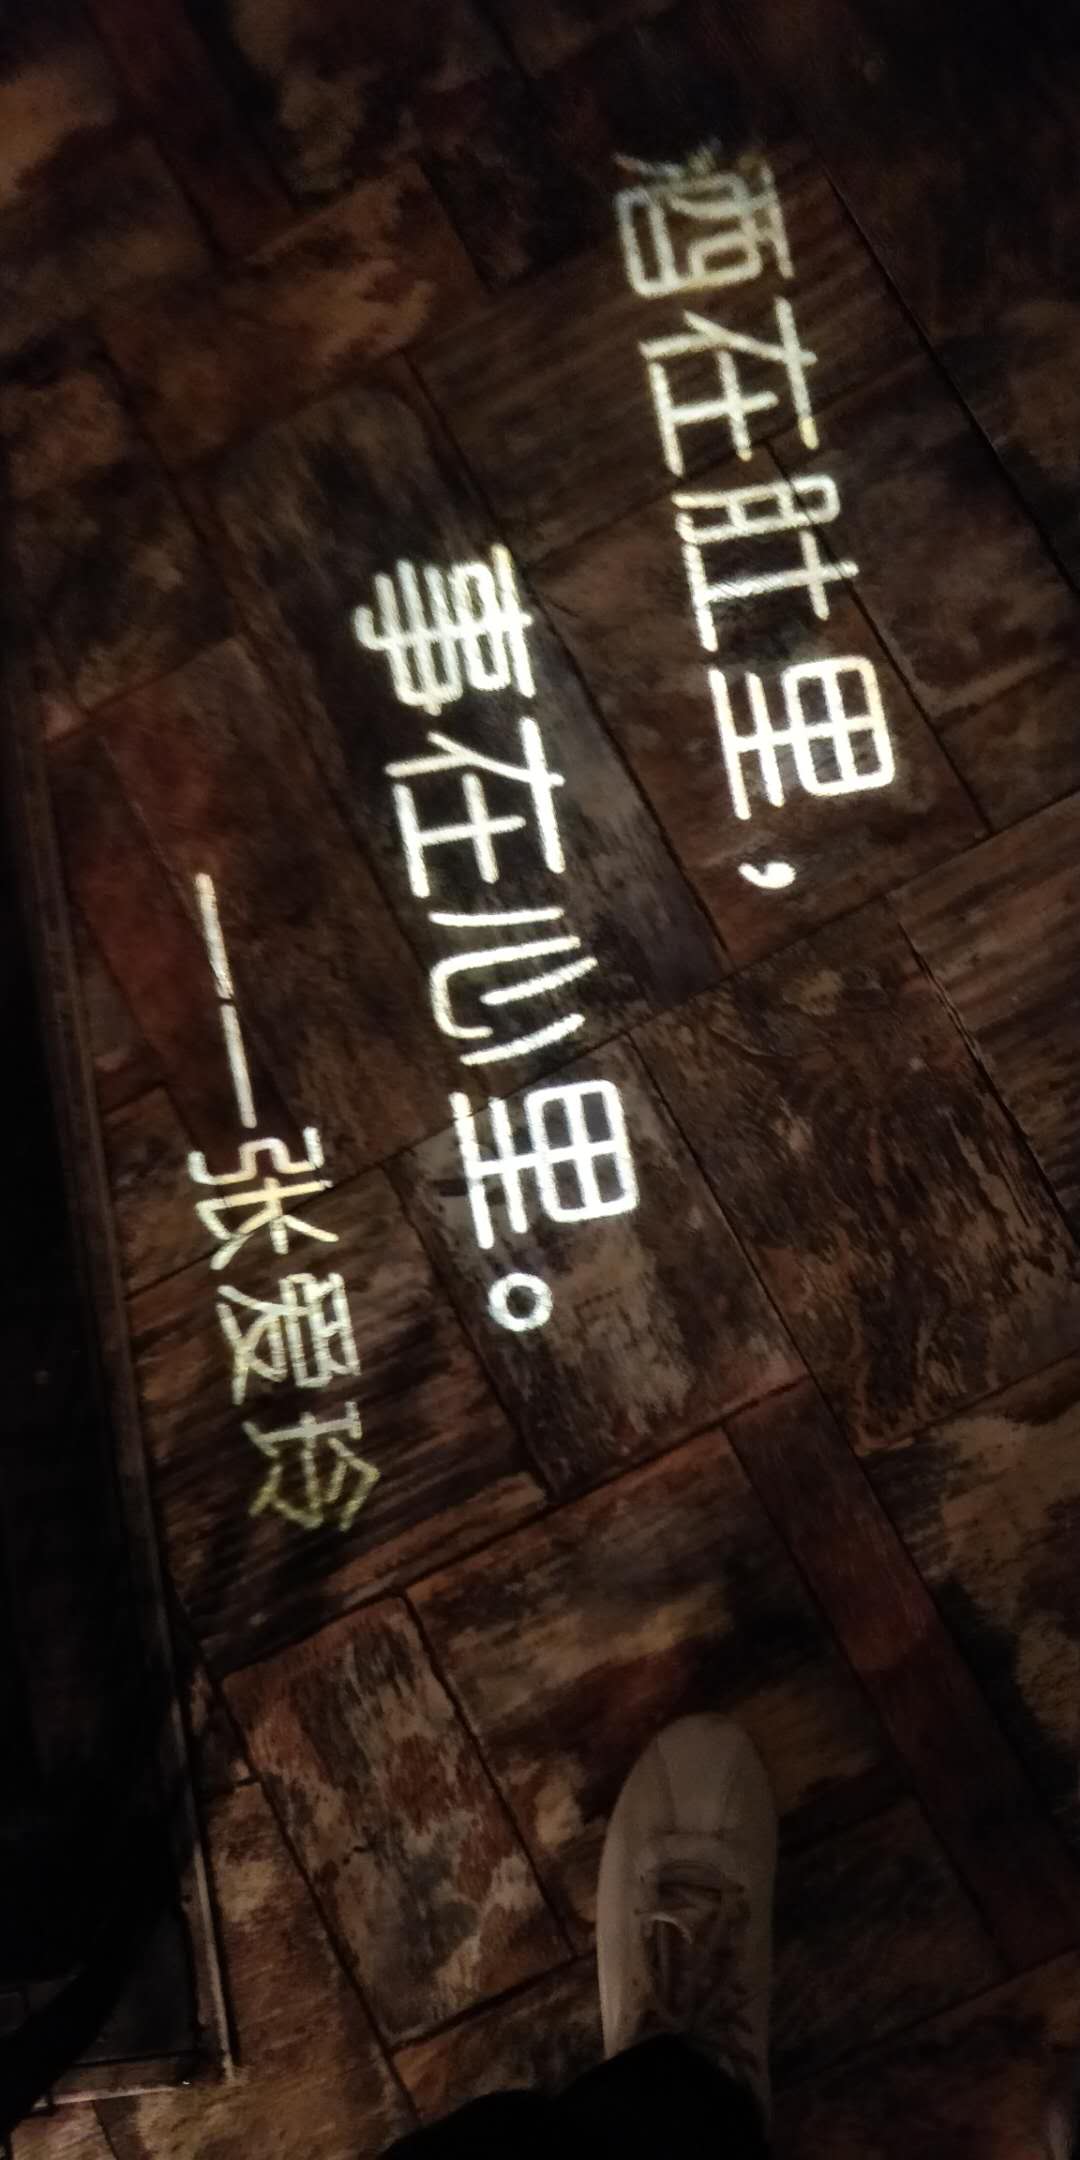 酒在肚里，
事在心里。
——张爱玲